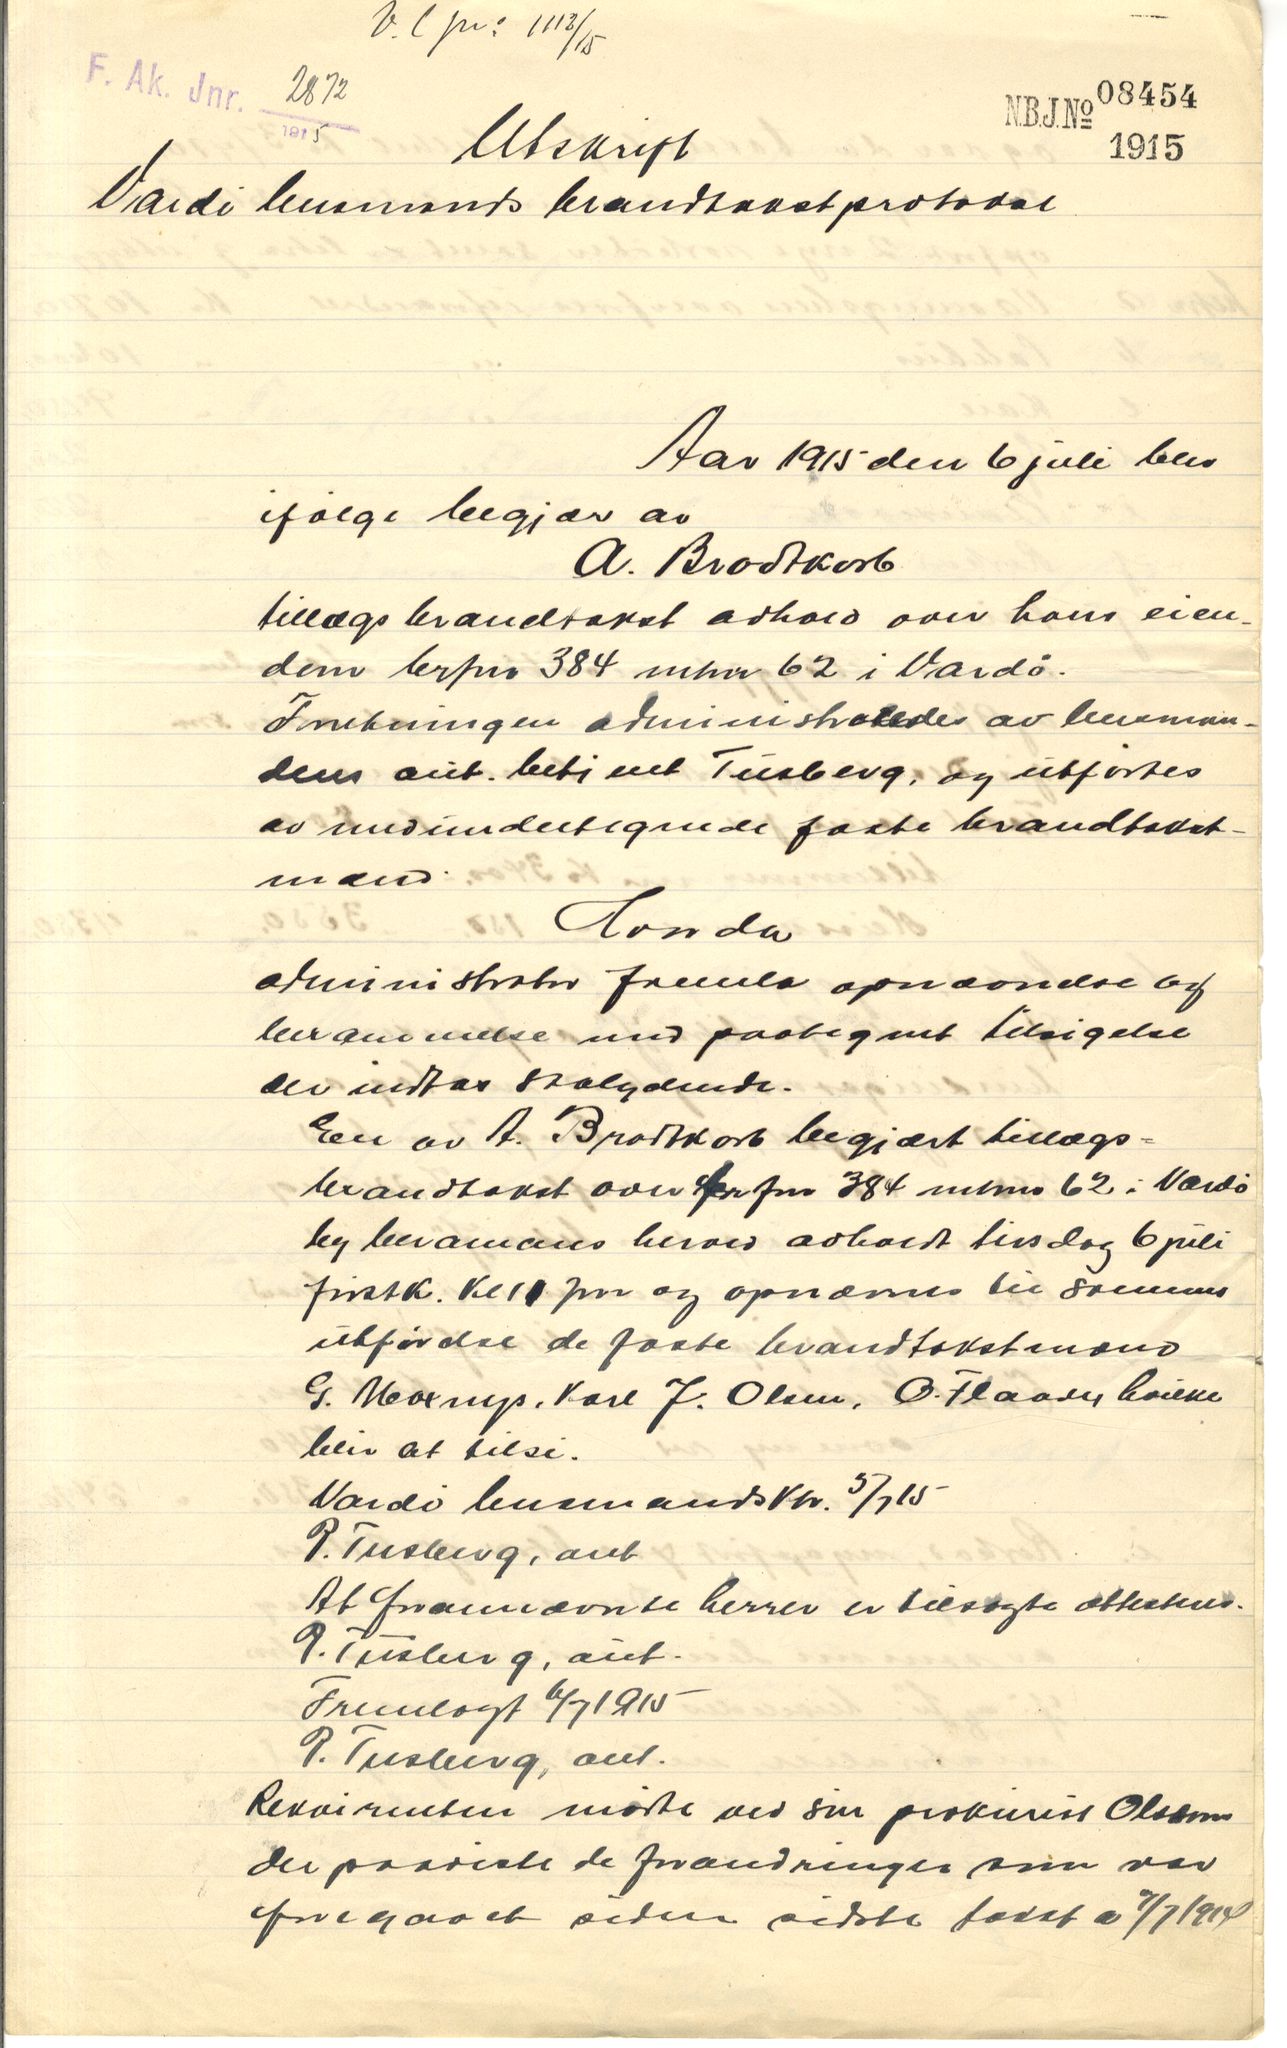 V. l. nr: 1113/15
F. Ak. Jnr. 2872
1915
N.B.J.No 08454
1915
Utskrift
Vardö lensmands brandtakstprotokol
Aar 1915 den 6 juli blev
ifölge begjær av
A. Brodtkorb
tillægsbrandtakst avhold over hans eien-
dom brfnr 384 mtnr 62 i Vardö.
Forretningen administreredes av lensman-
dens aut. betjent Tusberg, og utförtes
av nedundertegnede faste brandtakst-
mænd.
Hvorda
administrator fremla opnævnelse og
berammelse med paategnet tilsigelse
der indtas saalydende.
En av A. Brodtkorb begjært tillægs-
brandtakst over brfnr 384 mtnr 62 i Vardö
by berammes herved avholdt tirsdag 6 juli
förstk. kl 11 fm og opnævnes til sammes
utförelse de faste brandtakstmænd
G. Moxnys, Karl J. Olsen, O. Flaaten hvilke
blir at tilsi.
Vardö lensmandsktr. 5/7 15
P. Tusberg, aut
At forannævnte herrer er tilsagte attesteres.
P. Tusberg, aut.
Fremlagt 6/7 1915
P. Tusberg, aut.
Rekvirenten mötte ved sin prokurist Olsen
der paaviste de forandringer som var
foregaaet siden sidste takst a 7/7 1914